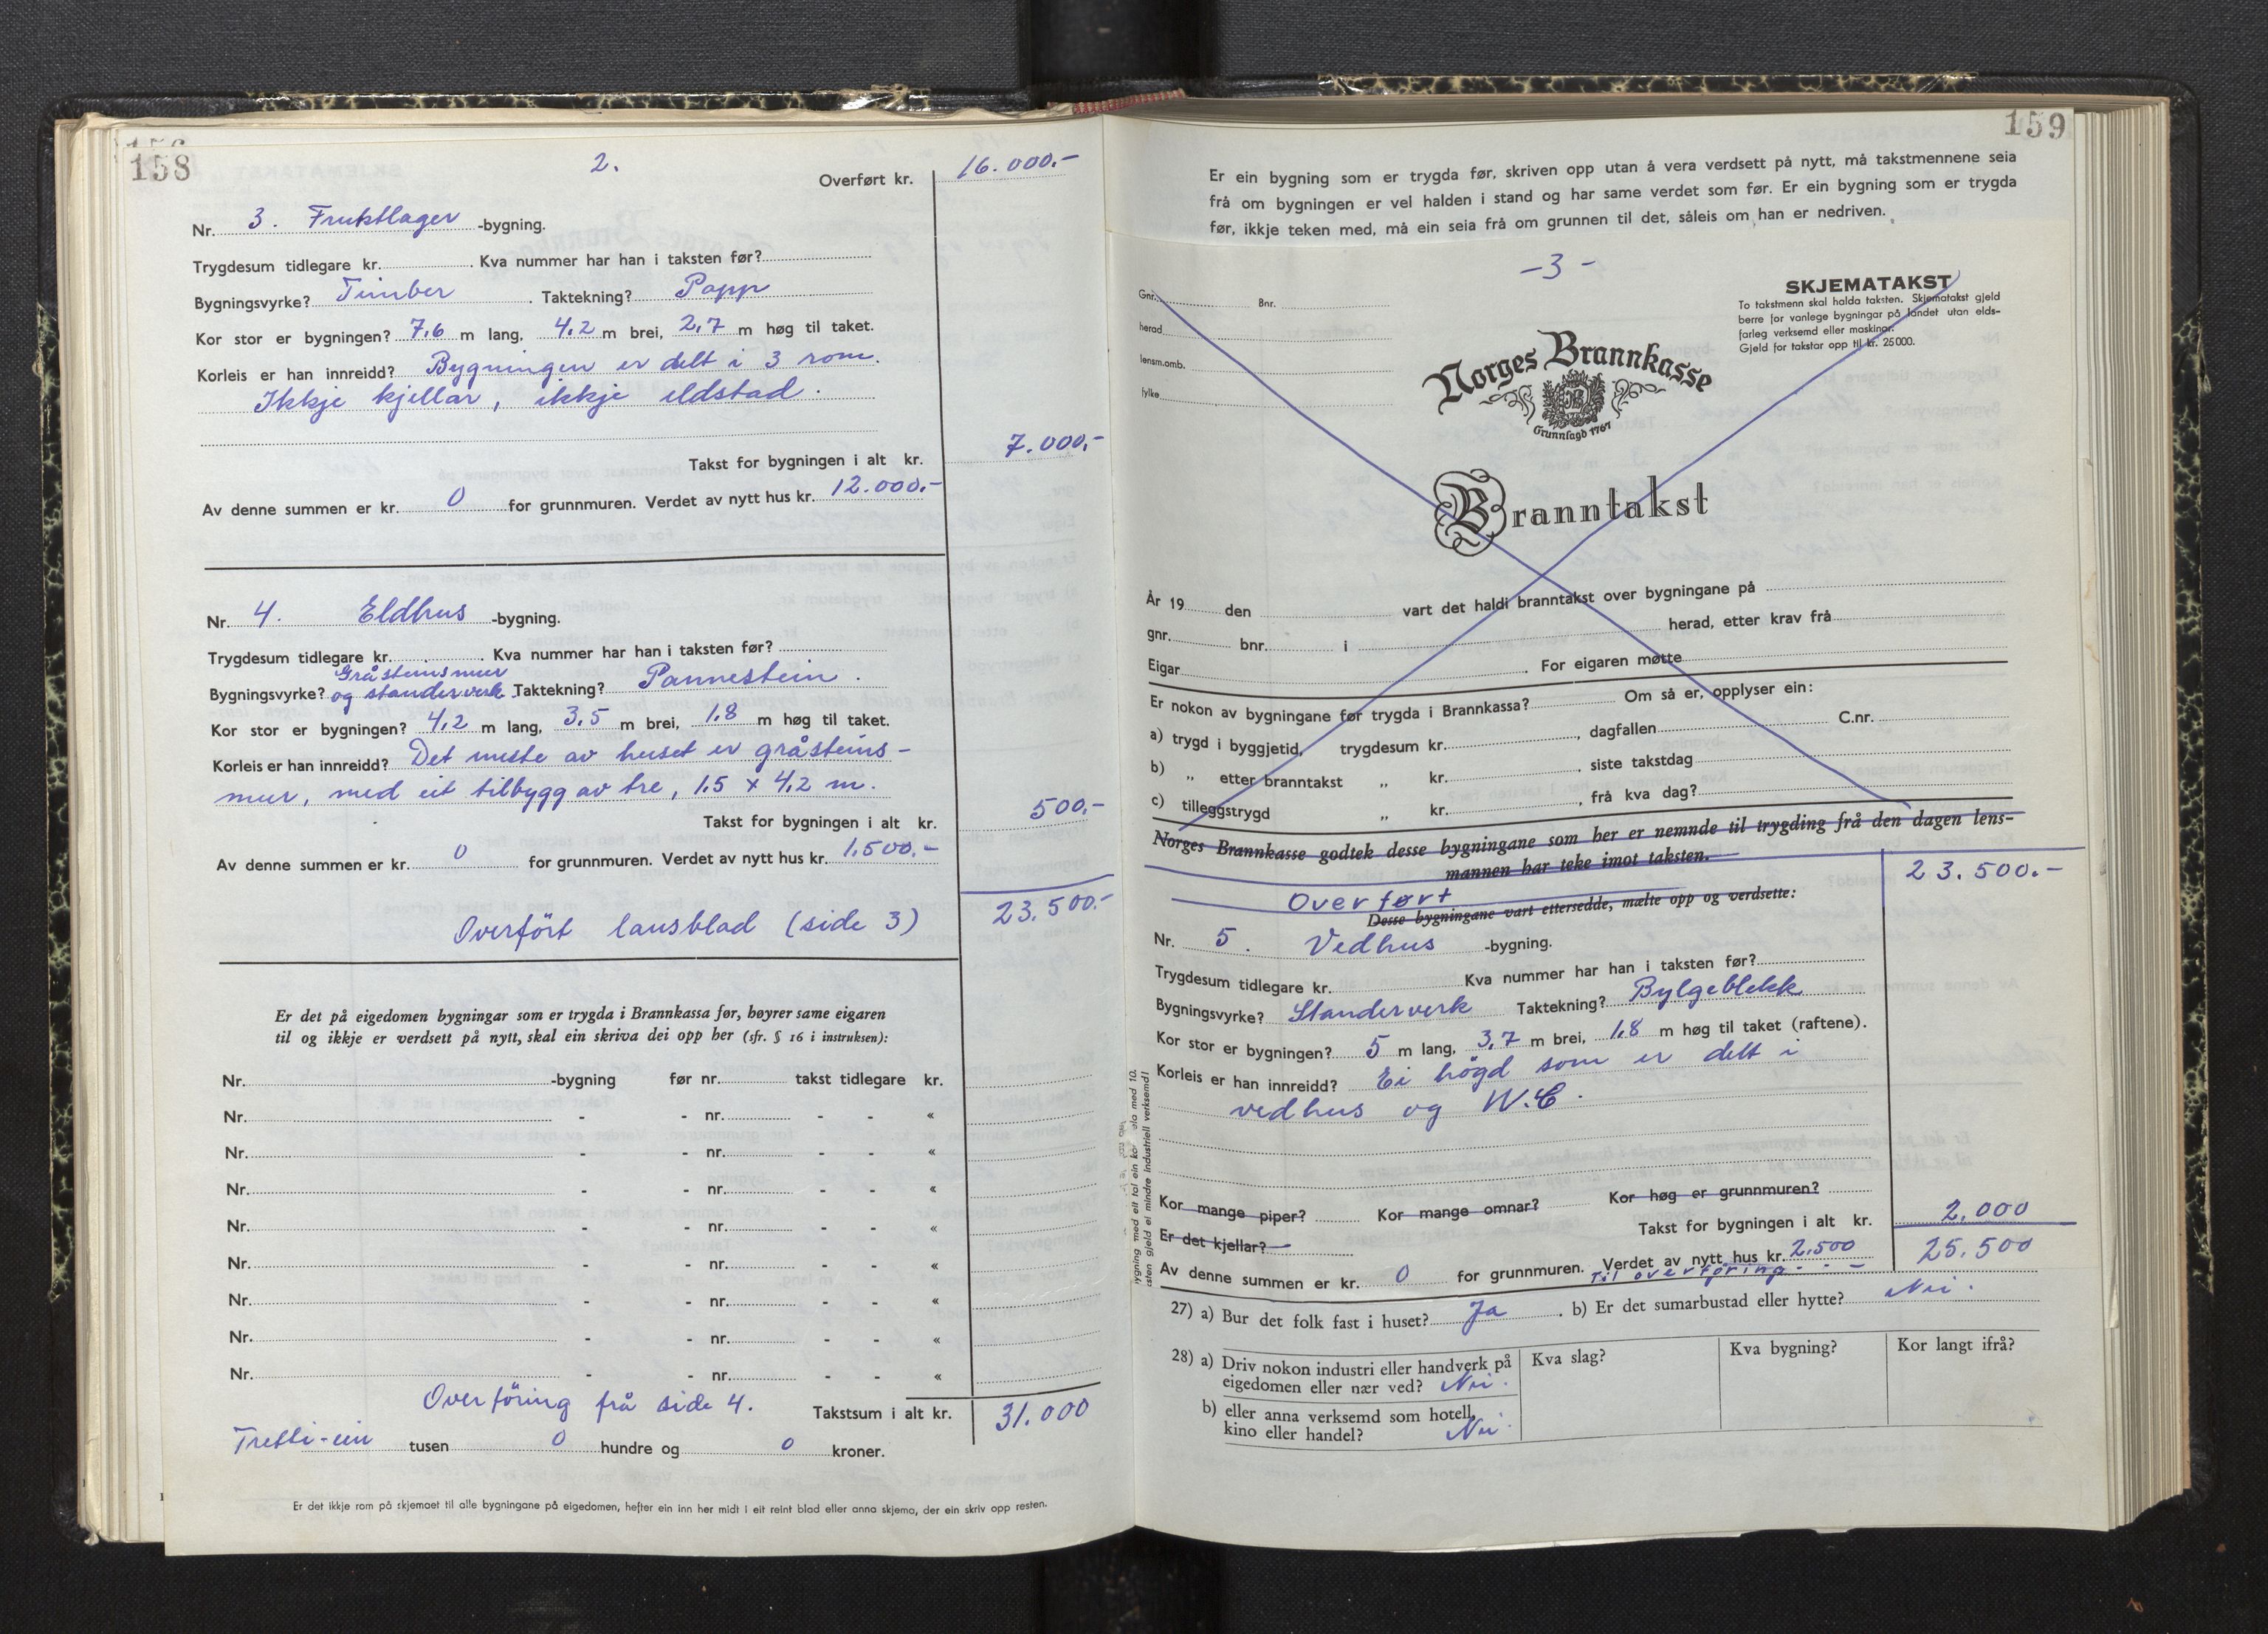 158
2.
Overført kr. 16.000.-
Nr. 3. Fruktlager -bygning.
Trygdesum tidlegare kr. Kva nummer har han i taksten før?
Bygningsvyrke? Timber. Taktekning? Papp
Kor stor er bygningen? 7,6 m lang, 4,2 m brei, 2,7 m høg til taket.
Korleis er han innreidd? Bygningen er delt i 3 rom.
Ikkje kjellar, ikkje eldstad.
Takst for bygningen i alt kr. 7.000,-
Av denne summen er kr. 0 for grunnmuren. Verdet av nytt hus kr. 12.000.-
Nr. 4. Eldhus -bygning.
Trygdesum tidlegare kr. Kva nummer har han i taksten før?
Gråsteinsmur
Bygningsvyrke? og standerverk. Taktekning? Pannestein.
Kor stor er bygningen? 4,2 m lang, 3,5 m brei, 1,8 m høg til taket.
Korleis er han innreidd? Det meste av huset er gråsteins-
mur, med eit tilbygg av tre, 1,5 x 4,2 m.
Takst for bygningen i alt kr. 500,-
Av denne summen er kr. 0 for grunnmuren. Verdet av nytt hus kr. 1.500.-
Overført lausblad (side 3) 23.500.-
Er det på eigedomen bygningar som er trygda i Brannkassa før, høyrer same eigaren
til og ikkje er verdsett på nytt, skal ein skriva dei opp her (sfr. § 16 i instruksen):
Nr. -bygning før nr. takst tidlegare kr.
Nr. - - nr. - - «
Nr. - - nr. - - «
Nr. - - nr. - - «
Nr. - - nr. - - «
Nr. - - nr. - - «
Nr. - - nr. - - «
Nr. - - nr. - - «
Nr. - - nr. - - «
Overføring frå side 4. Takstsum i alt kr. 31.000
Tretti-ein tusen 0 hundre og 0 kroner.
Er det ikkje rom på skjemaet til alle bygningane på eigedomen, hefter ein inn her midt i eit reint blad eller anna skjema, der ein skriv opp resten.
159
Er ein bygning som er trygda før, skriven opp utan å vera verdsett på nytt, må takstmennene seia
frå om bygningen er vel halden i stand og har same verdet som før. Er ein bygning som er trygda
før, ikkje teken med, må ein seia frå om grunnen til det, såleis om han er nedriven.
-3-
Gnr. Bnr.
herad
lensm.omb.
fylke
SKJEMATAKST
To takstmenn skal halda taksten. Skjematakst gjeld
berre for vanlege bygningar på landet utan elds-
farleg verksemd eller maskinar.
Gjeld for takstar opp til kr. 25000.
Norges Brannkasse
Grunnlagd 1767
Branntakst
År 19 den vart det haldi branntakst over bygningane på
gnr. bnr. i herad, etter krav frå
Eigar For eigaren møtte
Er nokon av bygningane før trygda i Brannkassa? Om så er, opplyser ein:
a) trygd i byggjetid, trygdesum kr. , dagfallen C.nr.
b) „ etter branntakst „ kr. , siste takstdag
c) tilleggstrygd „ kr. , frå kva dag?
Norges Brannkasse godtek desse bygningane som her er nemnde til trygding frå den dagen lens-
mannen har teke imot taksten.
Overført 23.500.-
Desse bygningane vart ettersedde, mælte opp og verdsette:
Nr. 5. Vedhus -bygning.
Trygdesum tidlegare kr. Kva nummer har han i taksten før?
Bygningsvyrke? Standerverk Taktekning? Bylgeblekk
Kor stor er bygningen? 5 m lang, 3,7 m brei, 1,8 m høg til taket (raftene).
Korleis er han innreidd? Ei högd som er delt i
vedhus og W.C.
Kor mange piper? Kor mange omnar? Kor høg er grunnmuren?
Takst for bygningen i alt kr. 2.000
Er det kjellar?
Av denne summen er kr. 0 for grunnmuren. Verdet av nytt hus kr. 2.500
Til overföring - - - 25.500
27) a) Bur det folk fast i huset? Ja. b) Er det sumarbustad eller hytte? Nei.
28) a) Driv nokon industri eller handverk på
eigedomen eller nær ved? Nei.
Kva slag? Kva bygning? Kor langt ifrå?
b) eller anna verksemd som hotell,
kino eller handel? Nei